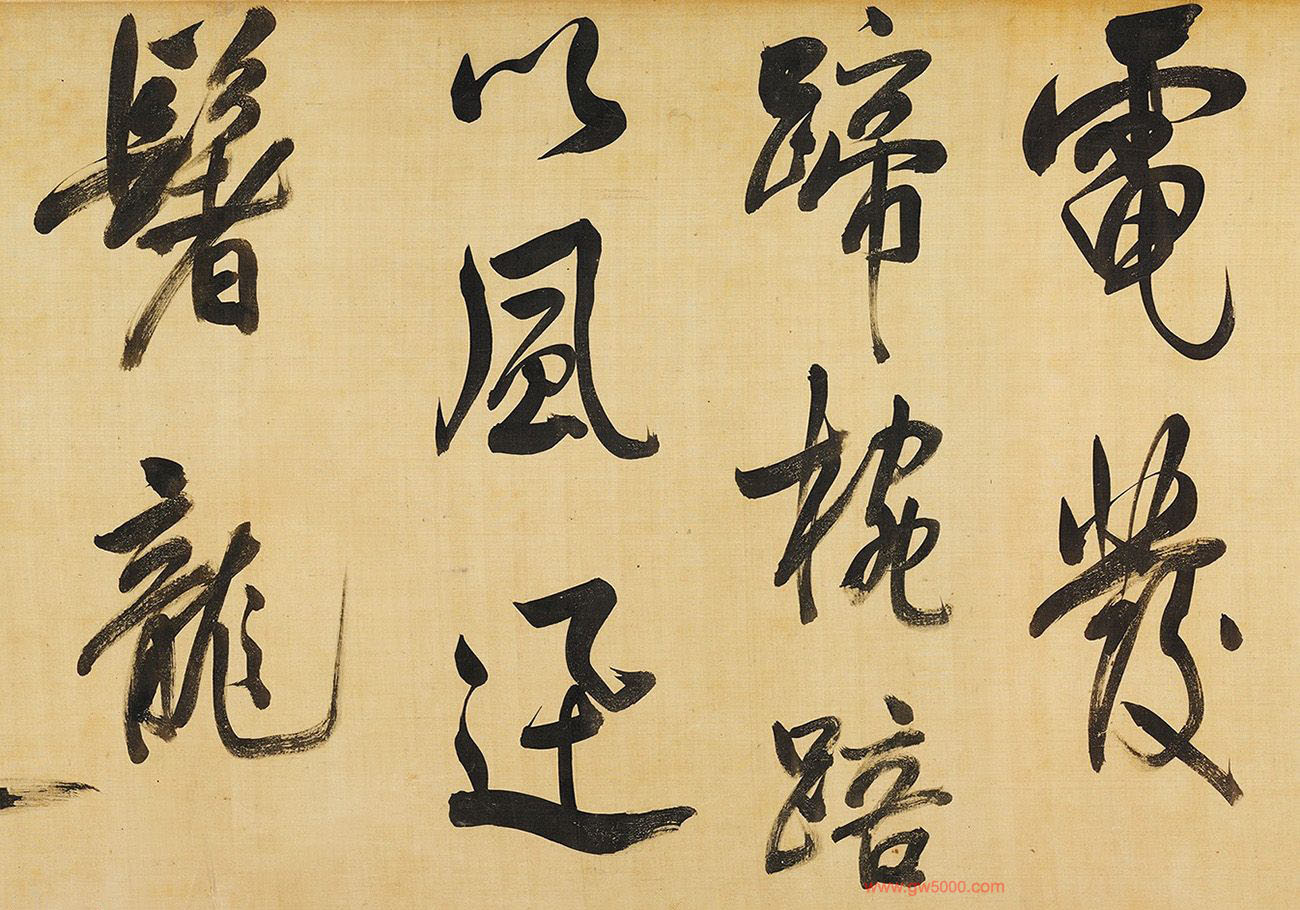 電發
蹄椀踣
以風迅
鬐龍
www.gw5000.com